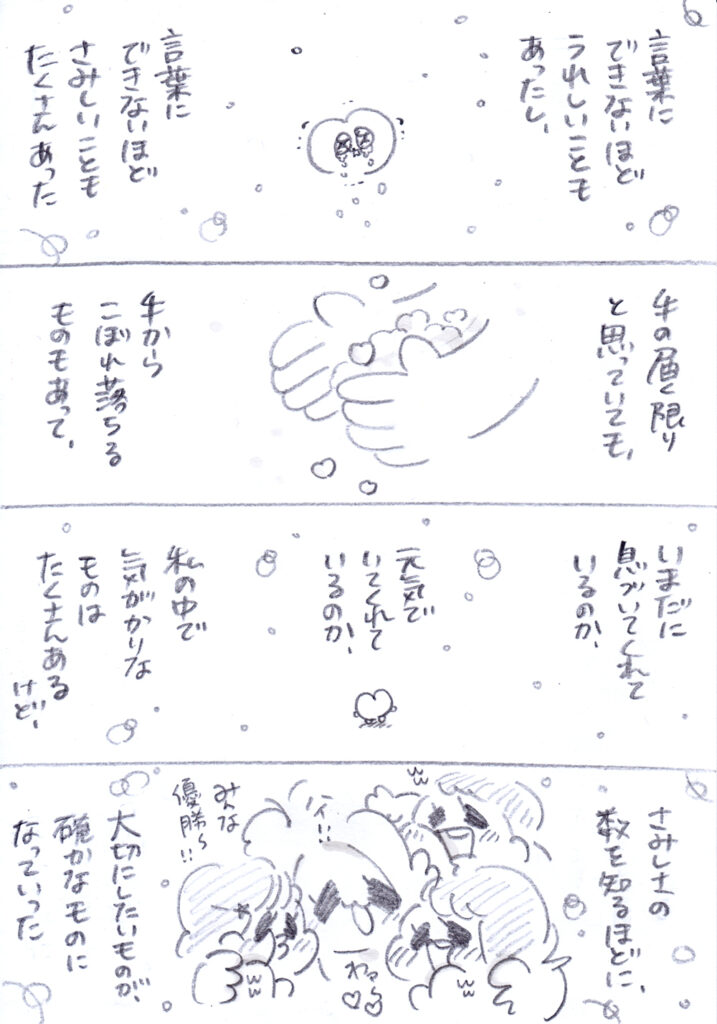 言葉に
できないほど
うれしいことも
あったし、
言葉に
できないほど
さみしいことも
たくさんあった
手の届く限り
と思っていても、
手から
こぼれ落ちる
ものもあって、
いまだに
息づいてくれて
いるのか、
元気で
いてくれて
いるのか、
私の中で
気がかりな
ものは
たくさんある
けど、
さみしさの
数を知るほどに、
みんな
優勝〜!!
大切にしたいものが、
確かなものに
なっていった